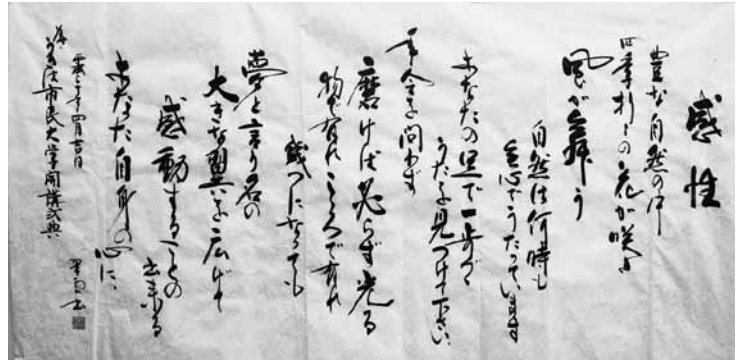 感性
豊な自然の中
四季折々の花が咲き
風が舞う
自然は何時も
無心でうたっています
あなたの足で一歩づつ
うたを見つけて下さい
年令を問わず
磨けば必らず光る
物で有れこころで有れ
幾つになっても
夢と言う名の
大きな翼を広げて
感動することの
出来る
あなた自身の心に
市民大学開講式典